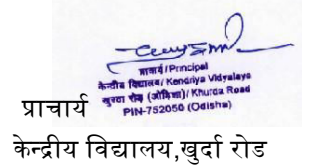 प्राचार्य/Principal
केन्द्रीय विद्यालय/ Kendriya Vidyalaya
खुरदा रोड़ (ओडिशा)/ Khurda Road
PIN-752050 (Odisha)
प्राचार्य
केन्द्रीय विद्यालय,खुर्दा रोड